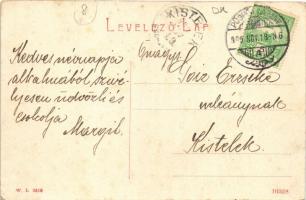 8
DK
LEVELEZŐ-LAP
KISTELEK
Kedves névnapja
alkalmából szívé-
lyesen üdvözli és
csókolja
Margit.
Nagys.
Erzsike
uleánynak
Kistelek
W. L.